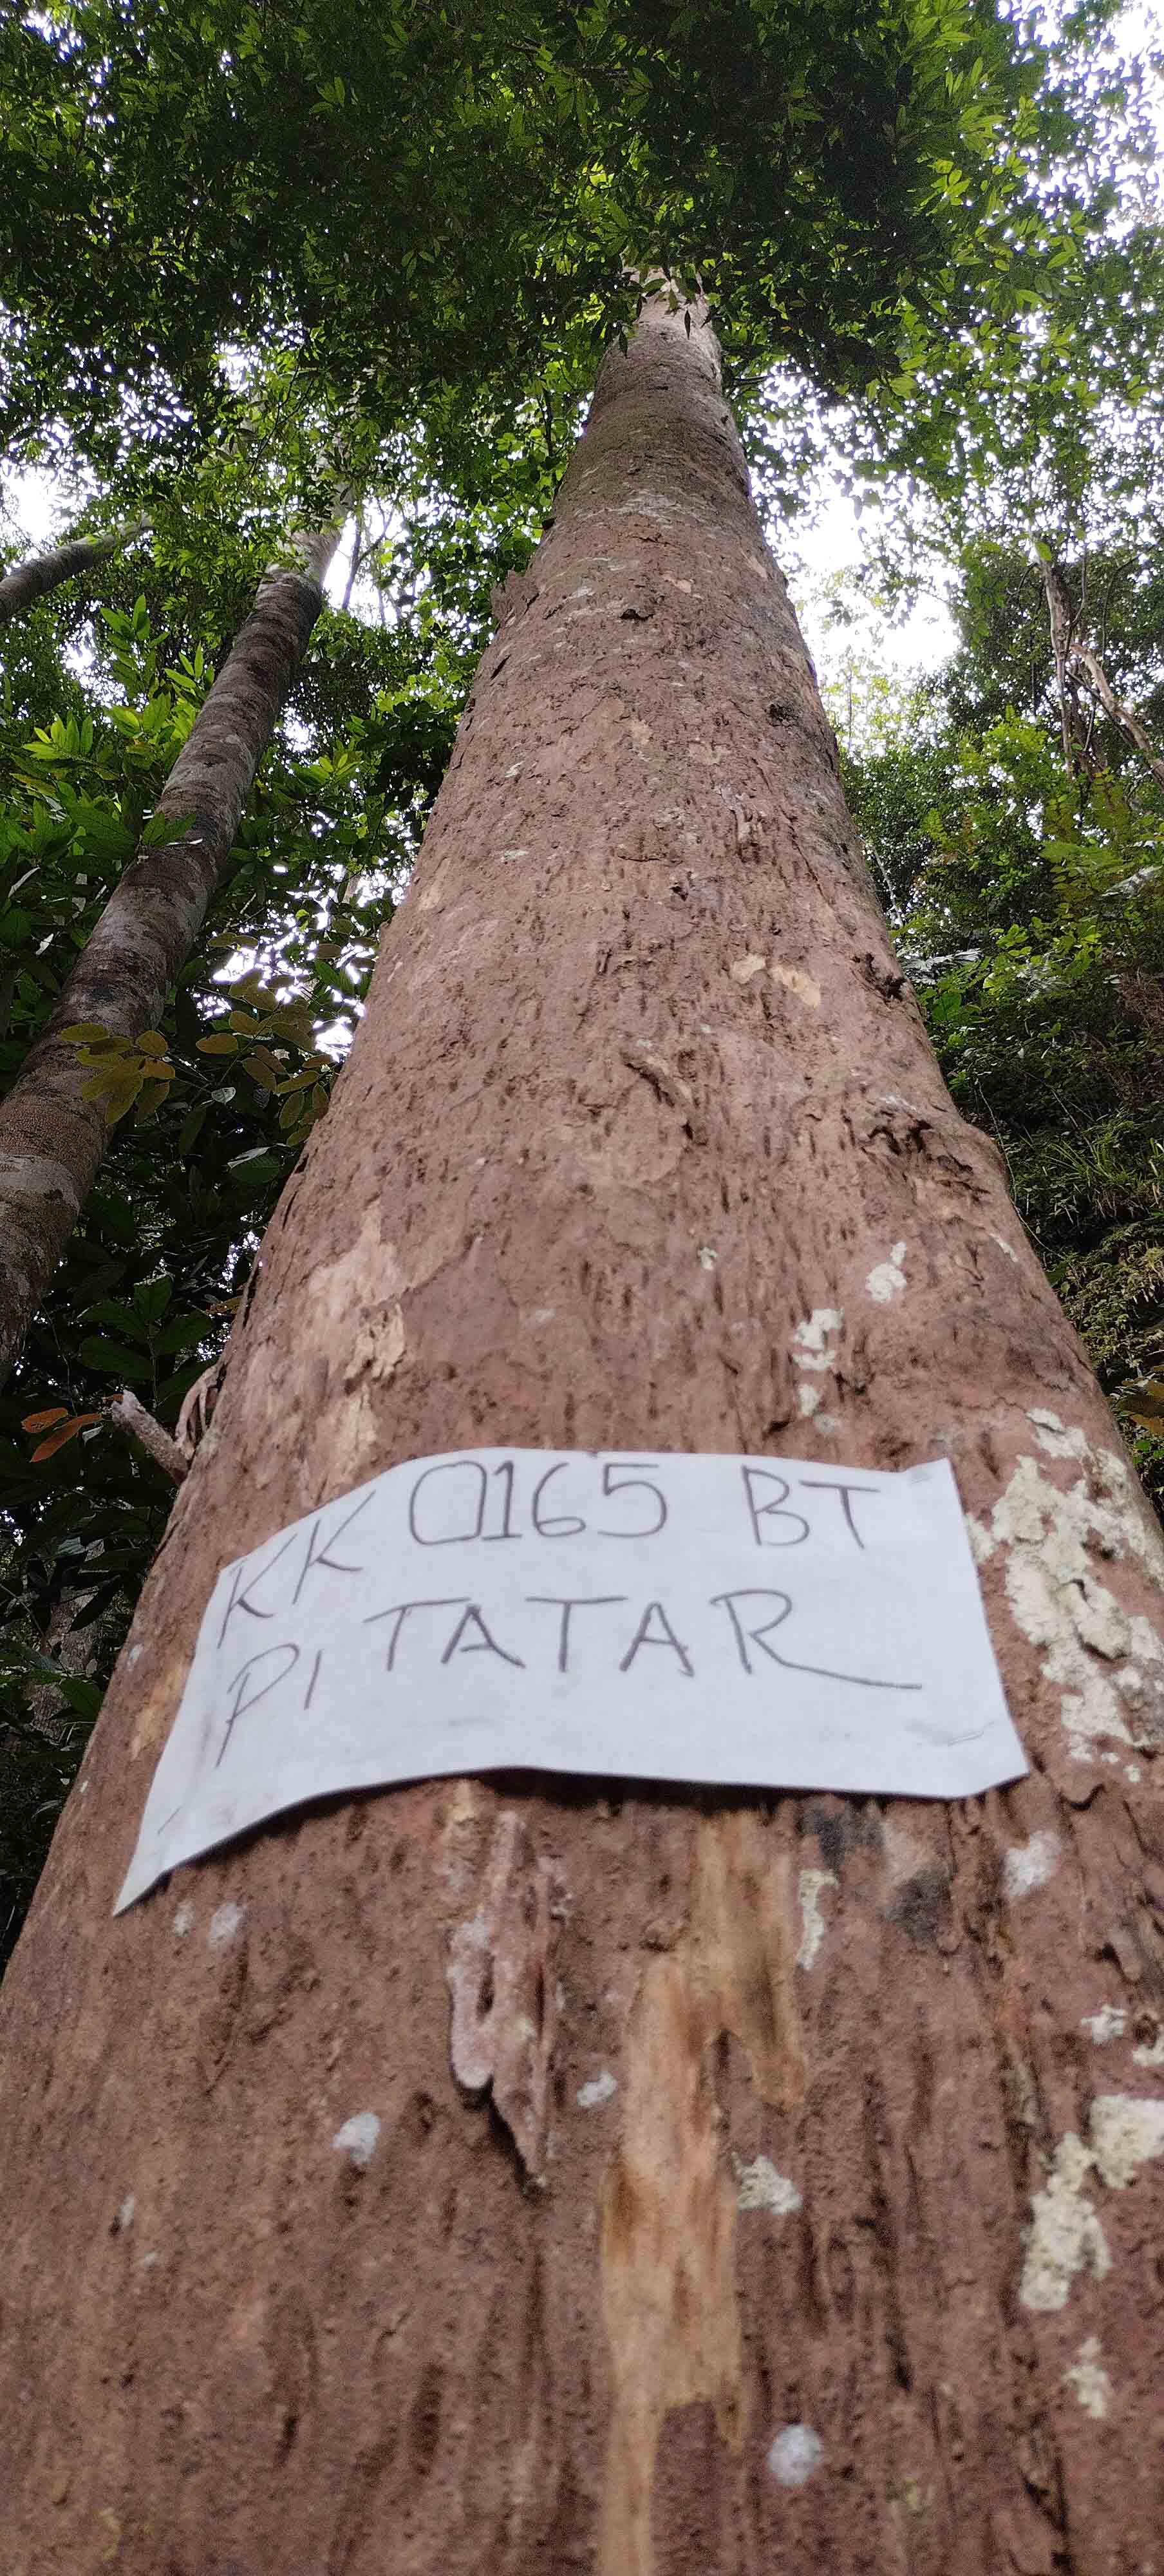 KK 0165 BT
PI TATAR